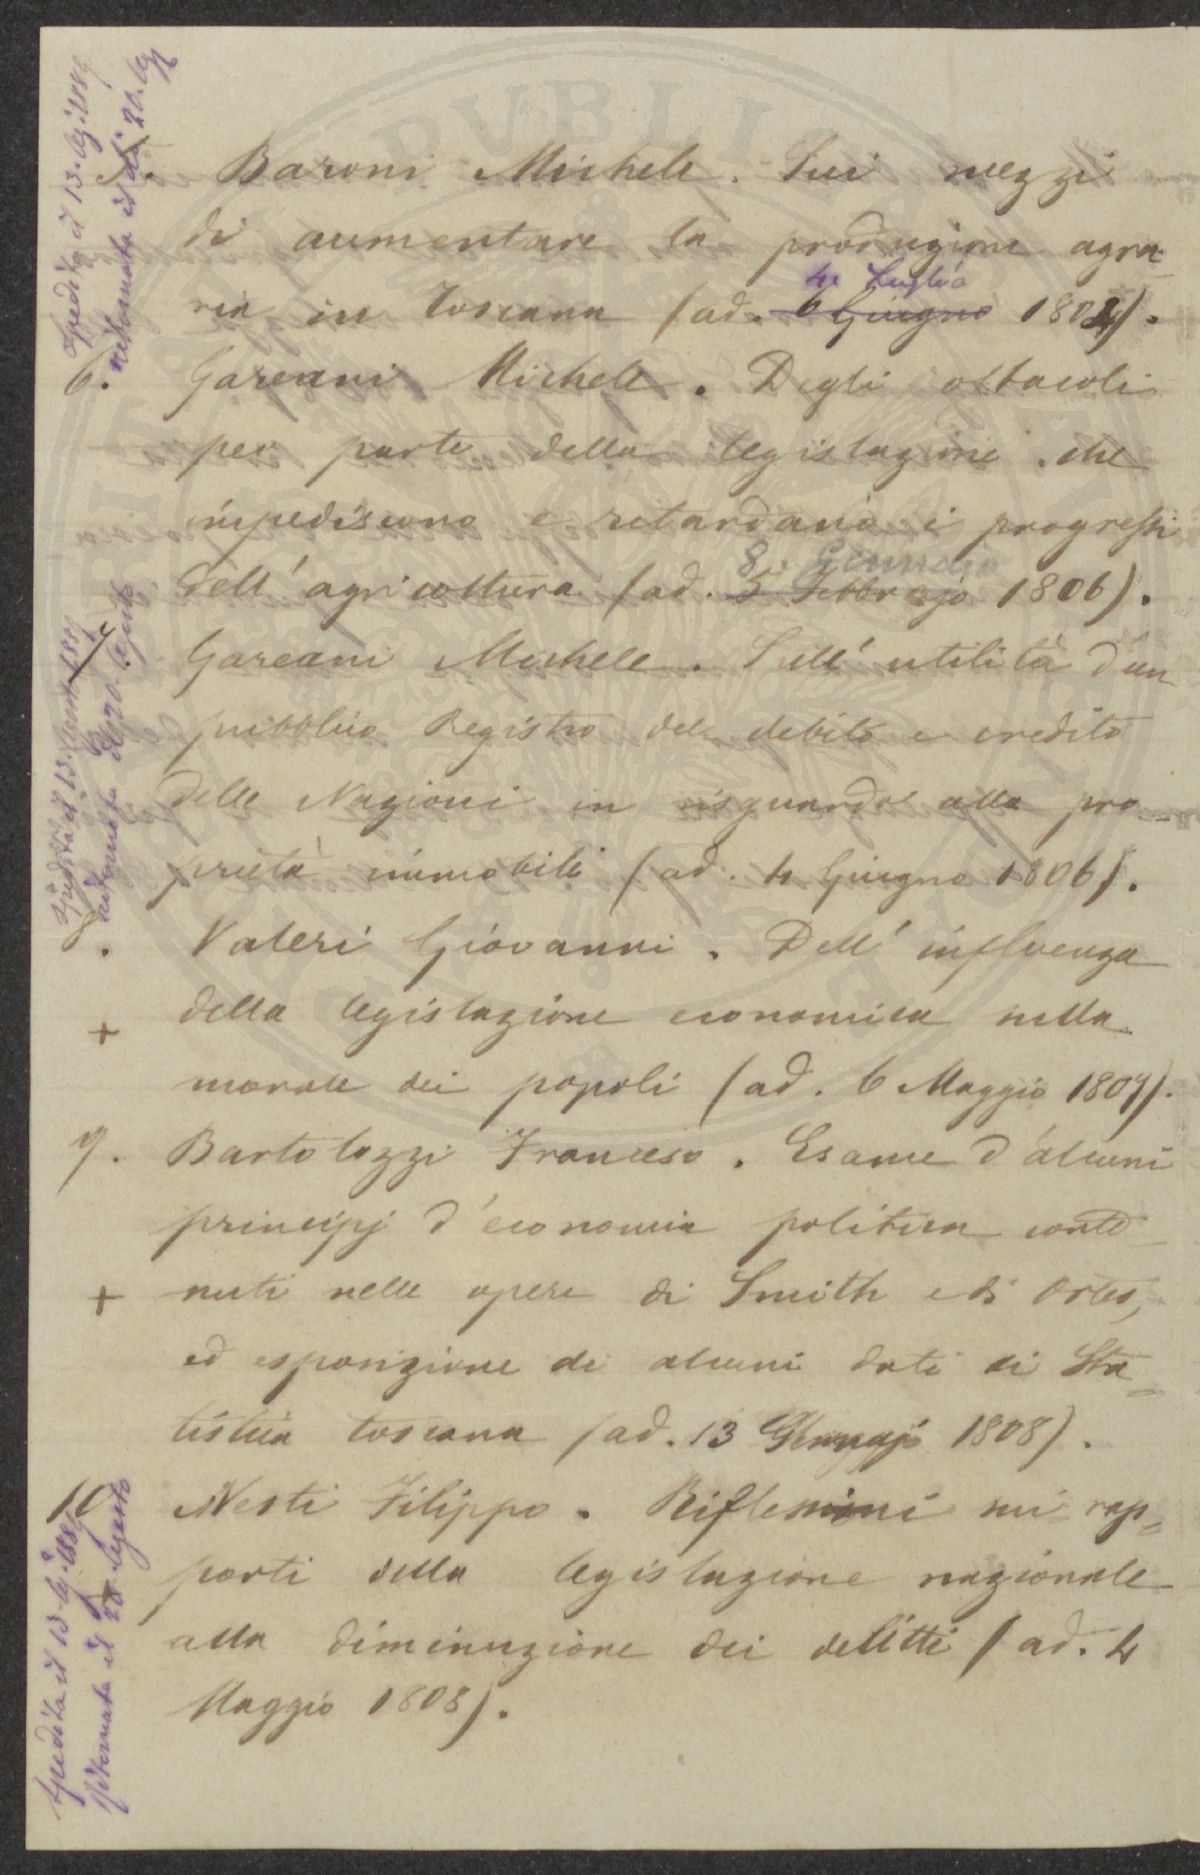 5. Baroni Michele. Sui mezzi
di aumentare la produzione agra-
ria in Toscana (ad. 6 Giugno 4 Luglio 1804).
6. Gazzani Michele. Degli ostacoli
per parte della legislazione che
impediscono e ritardano i progressi
dell' agricoltura (ad. 5 Febbrajo 8. Gennajo 1806).
7 Gazzani Michele. Sull' utilità d'un
pubblico Registro del debito e credito
delle Nazioni in risguardo alla pro-
prietà immobile (ad. 4 Giugno 1806).
8. Valeri Giovanni. Dell' influenza
+ della legislazione economica nella
morale dei popoli (ad. 6 Maggio 1807).
9. Bartolozzi Francesco. Esame d'alcuni
principj d'economia politica conte-
+ nuti nelle opere di Smith e di Ortes,
ed esposizione di alcuni dati di Sta-
tistica toscana (ad. 13 Gennajo 1808).
10 Nesti Filippo. Riflessioni sui rap-
+ porti della legislazione nazionale
alla diminuzione dei delitti (ad. 4
Maggio 1808).
Spedita il 13. Ag. 1889
ritornata il dì 20. Ag
Spedita il 13. Agosto 1889
ritornata il 20. Agosto
Spedita il 13 Ag. 1889
Ritornata il 20 Agosto